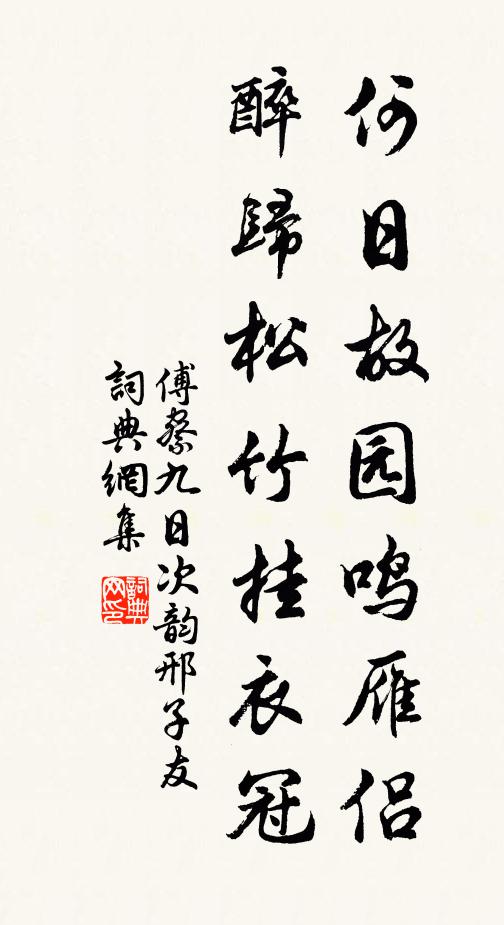 何日故园鸣雁侣
醉歸松竹挂衣冠
傅察九日次韵邢子友
詞典網集
詞典
网印